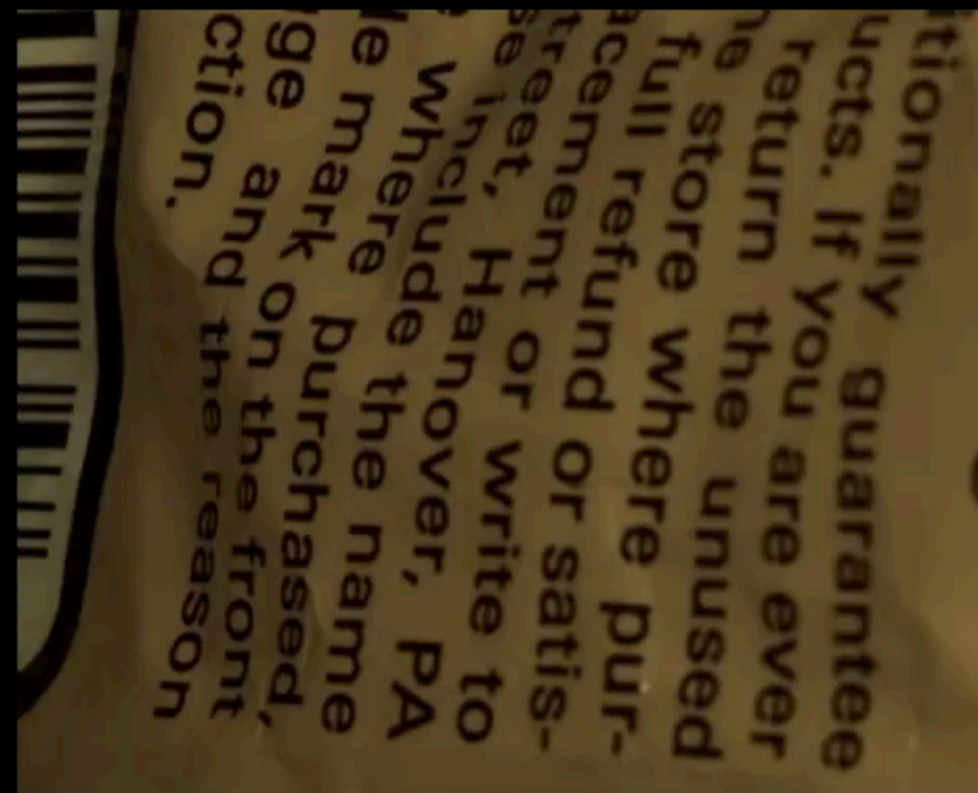 tionally guarantee
ucts. If you are ever
return the unused
he store where pur-
full refund or satis-
acement or write to
treet, Hanover, PA
se include the name
where purchased,
de mark on the front
ge and the reason
ction.